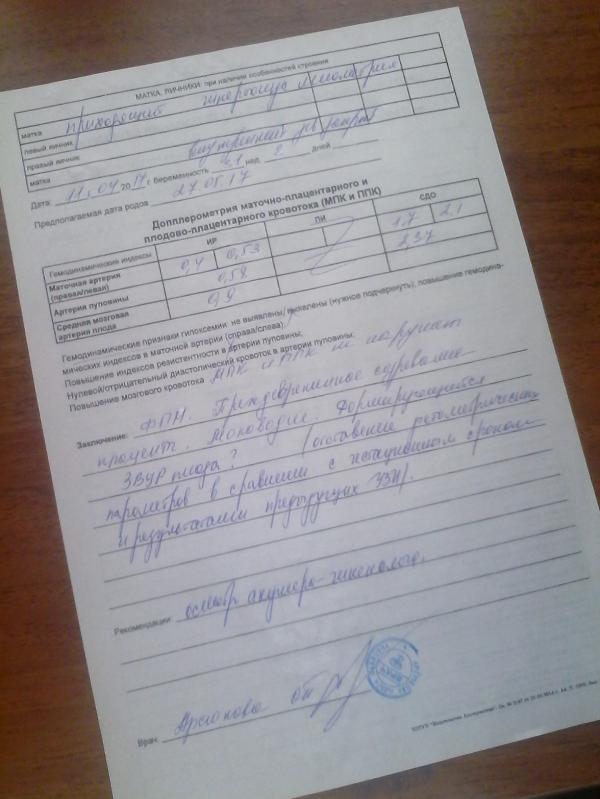 МАТКА, ЯИЧНИКИ: при наличии особенностей строения
матка преходящий гипертонус миометрия
левый яичник
правый яичник
матка внутренний зев закрыт
Дата: 11.04 20 17 г. беременность нед дней
Предполагаемая дата родов 27.05.17
Допплерометрия маточно-плацентарного и
плодово-плацентарного кровотока (МПК и ППК)
Гемодинамические индексы ИР ПИ СДО
Маточная артерия (правая/левая) 0,4 0,53 1,7 2,1
Артерии пуповины 0,58 2,37
Средняя мозговая артерия плода
Гемодинамические признаки гипоксемии: не выявлены/выявлены (нужное подчеркнуть); повышение гемодина-
мических индексов в маточной артерии (справа/слева);
Повышение индексов резистентности в артерии пуповины;
Нулевой/отрицательный диастолический кровоток в артерии пуповины;
Повышение мозгового кровотока МПК и ППК не наруш
Заключение: ФПН. Преждевременное созревание
плаценты. Маловодие. Формирующееся
ЗВУР плода? (отставание фетометрических
параметров в сравнении с гестационным сроком
и результатами предыдущих УЗИ).
Рекомендации: осмотр акушера-гинеколога.
Врач